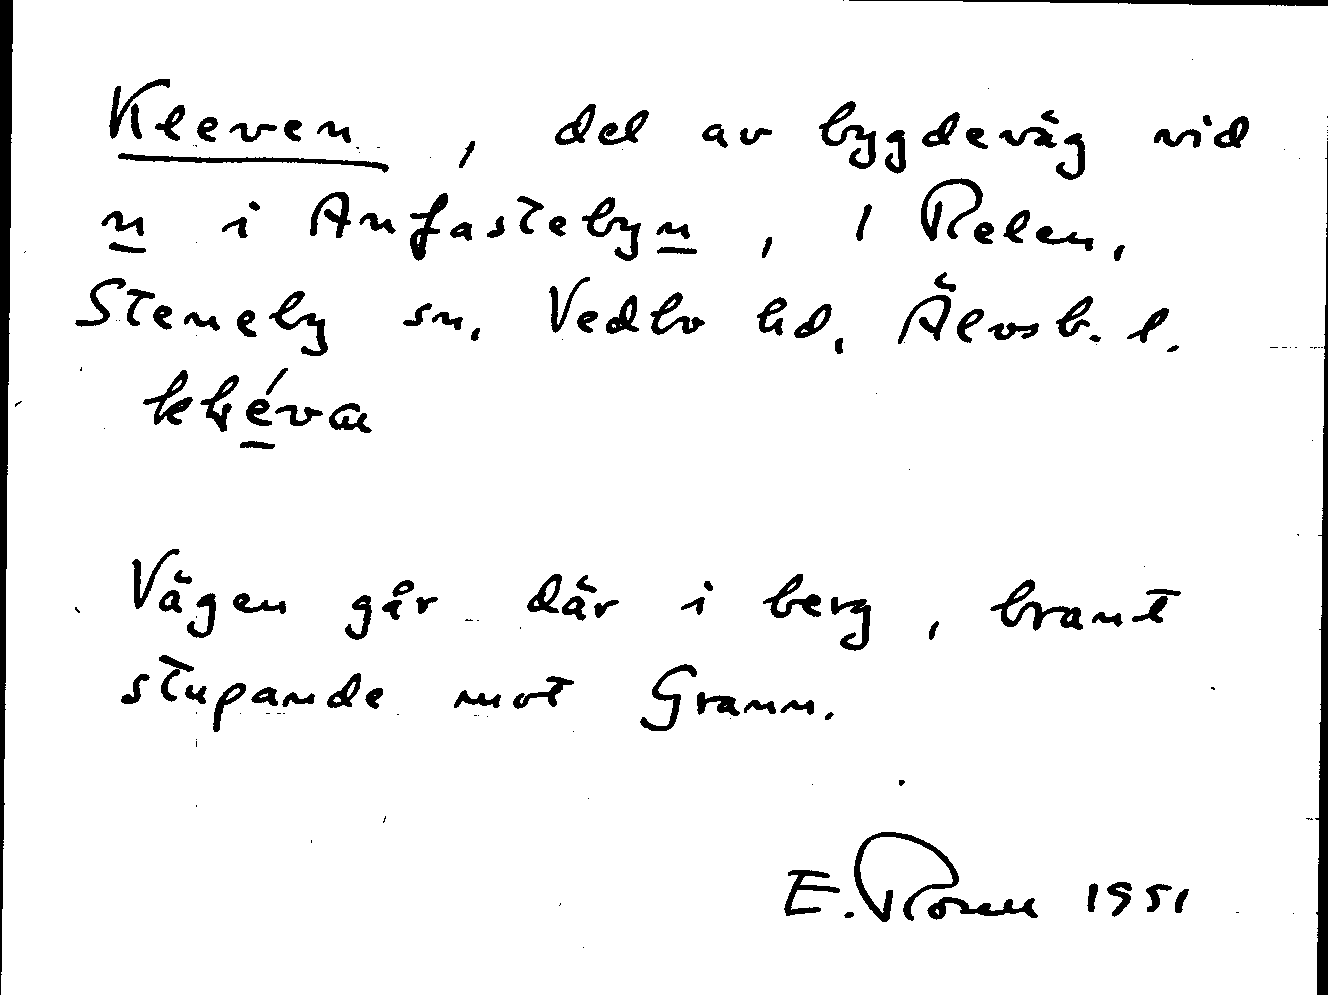 Kleven, del av bygdeväg vid
n i Anfastebyn, 1 Relen,
Steneby sn. Vedbo hd. Älvsb. l.
Vägen går där i berg, brant
stupande mot Grann.
E. 1951